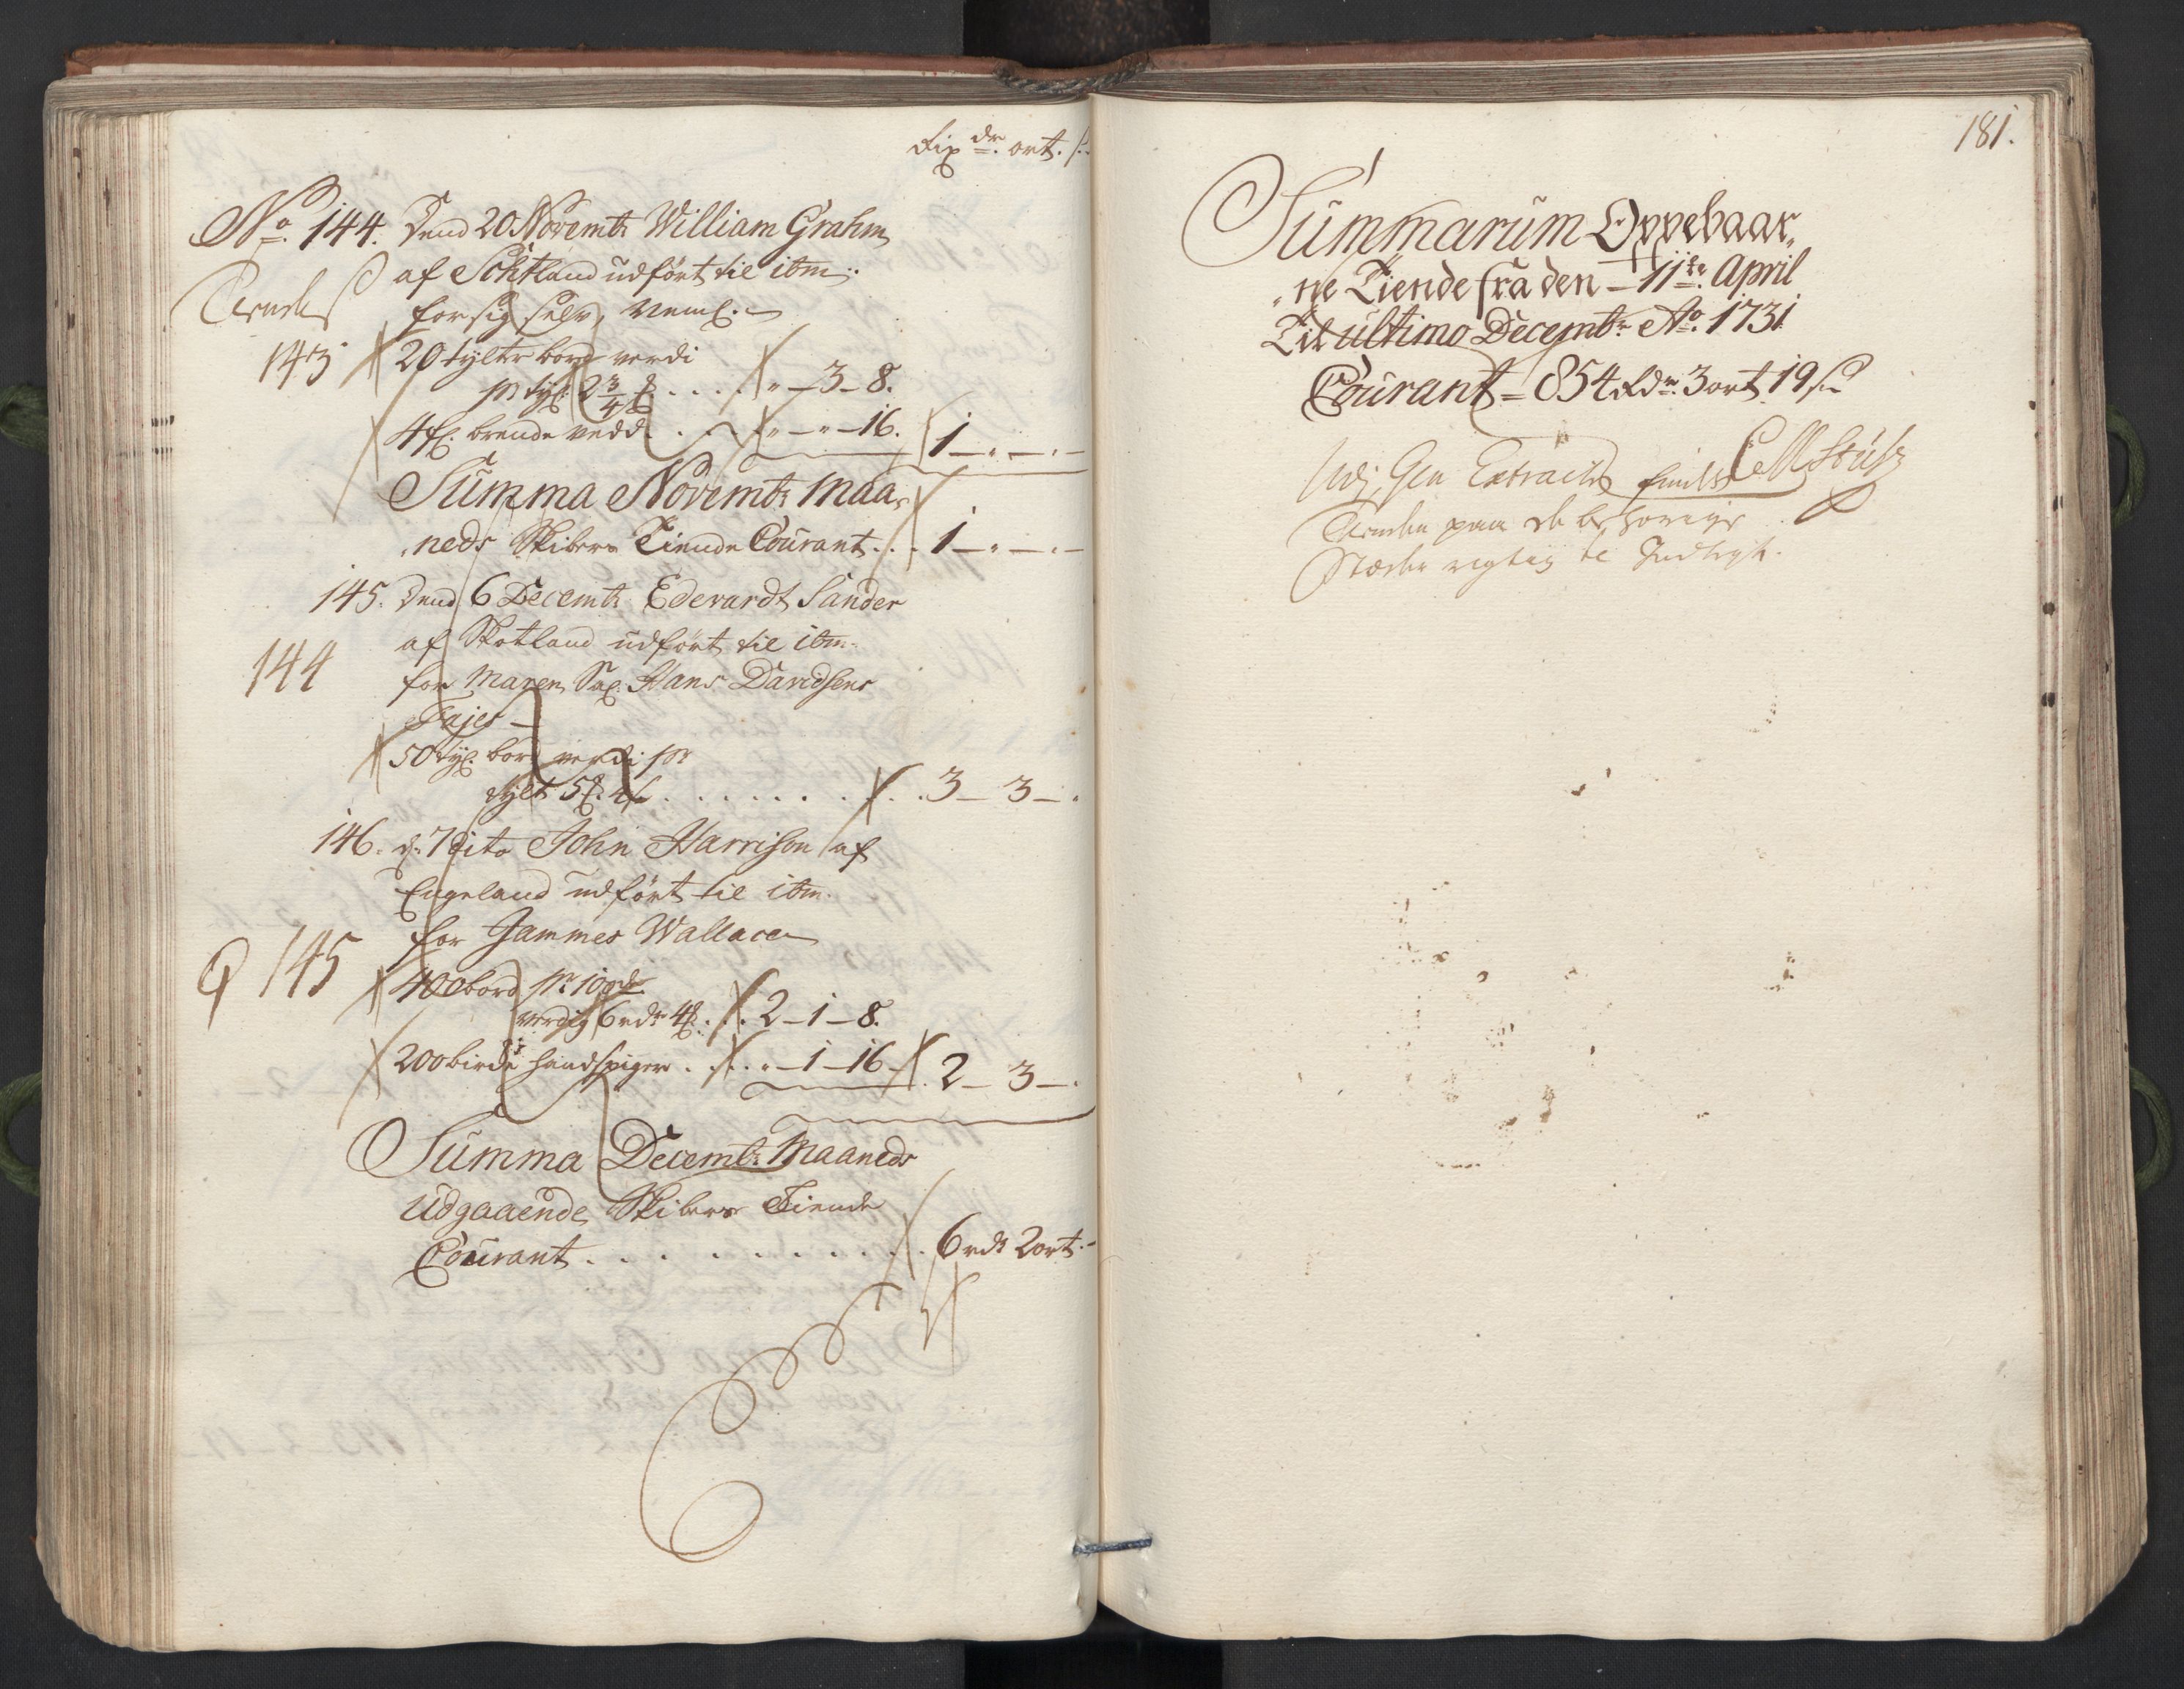 Rix dr. ort. s.
No. 144. Dend 20 Novembr William Grahm
af Schtland udført til itm.
Tiende
for sig selv, neml.
143
20 tylter bord verdi
pr tyl. 2 3/4 . . . . " — 3 — 8.
4 f. brende vedd . . . " — " — 16. 1 — . — . —
Summa Novembr Maa-
neds Skibers Tiende Courant . . 1 — . — . —
145. Dend 6 Decembr Edevardt Sander
144
af Skotland udført til itm.
for Maren Sal. Hans Davidsens
50 tyl. bord verdi pr
tylt . . . . . . . . 3 — 3 — .
146. d. 7 dito John Harrison af
Engeland udført til itm.
for Jammes Wallace
145
400 bord pr. 100de
verdig 6 rdr . . 2 — 1 — 8.
200 birke handspiger . . . " — 1 — 16 . 2 — 3 — .
Summa Decembr Maaneds
Udgaaende Skibers Tiende
Courant . . . . . . . . . 6 rdr 2 ort . —
181.
Summarum Oppebaar-
ne Tiende fra den — 11te April
Til ultimo Decembr Ao. 1731
Courant = 854 Rdr. 3 ort 19 s
Gen Extracten findes
Tienden paa de behørige
Stæder rigtig